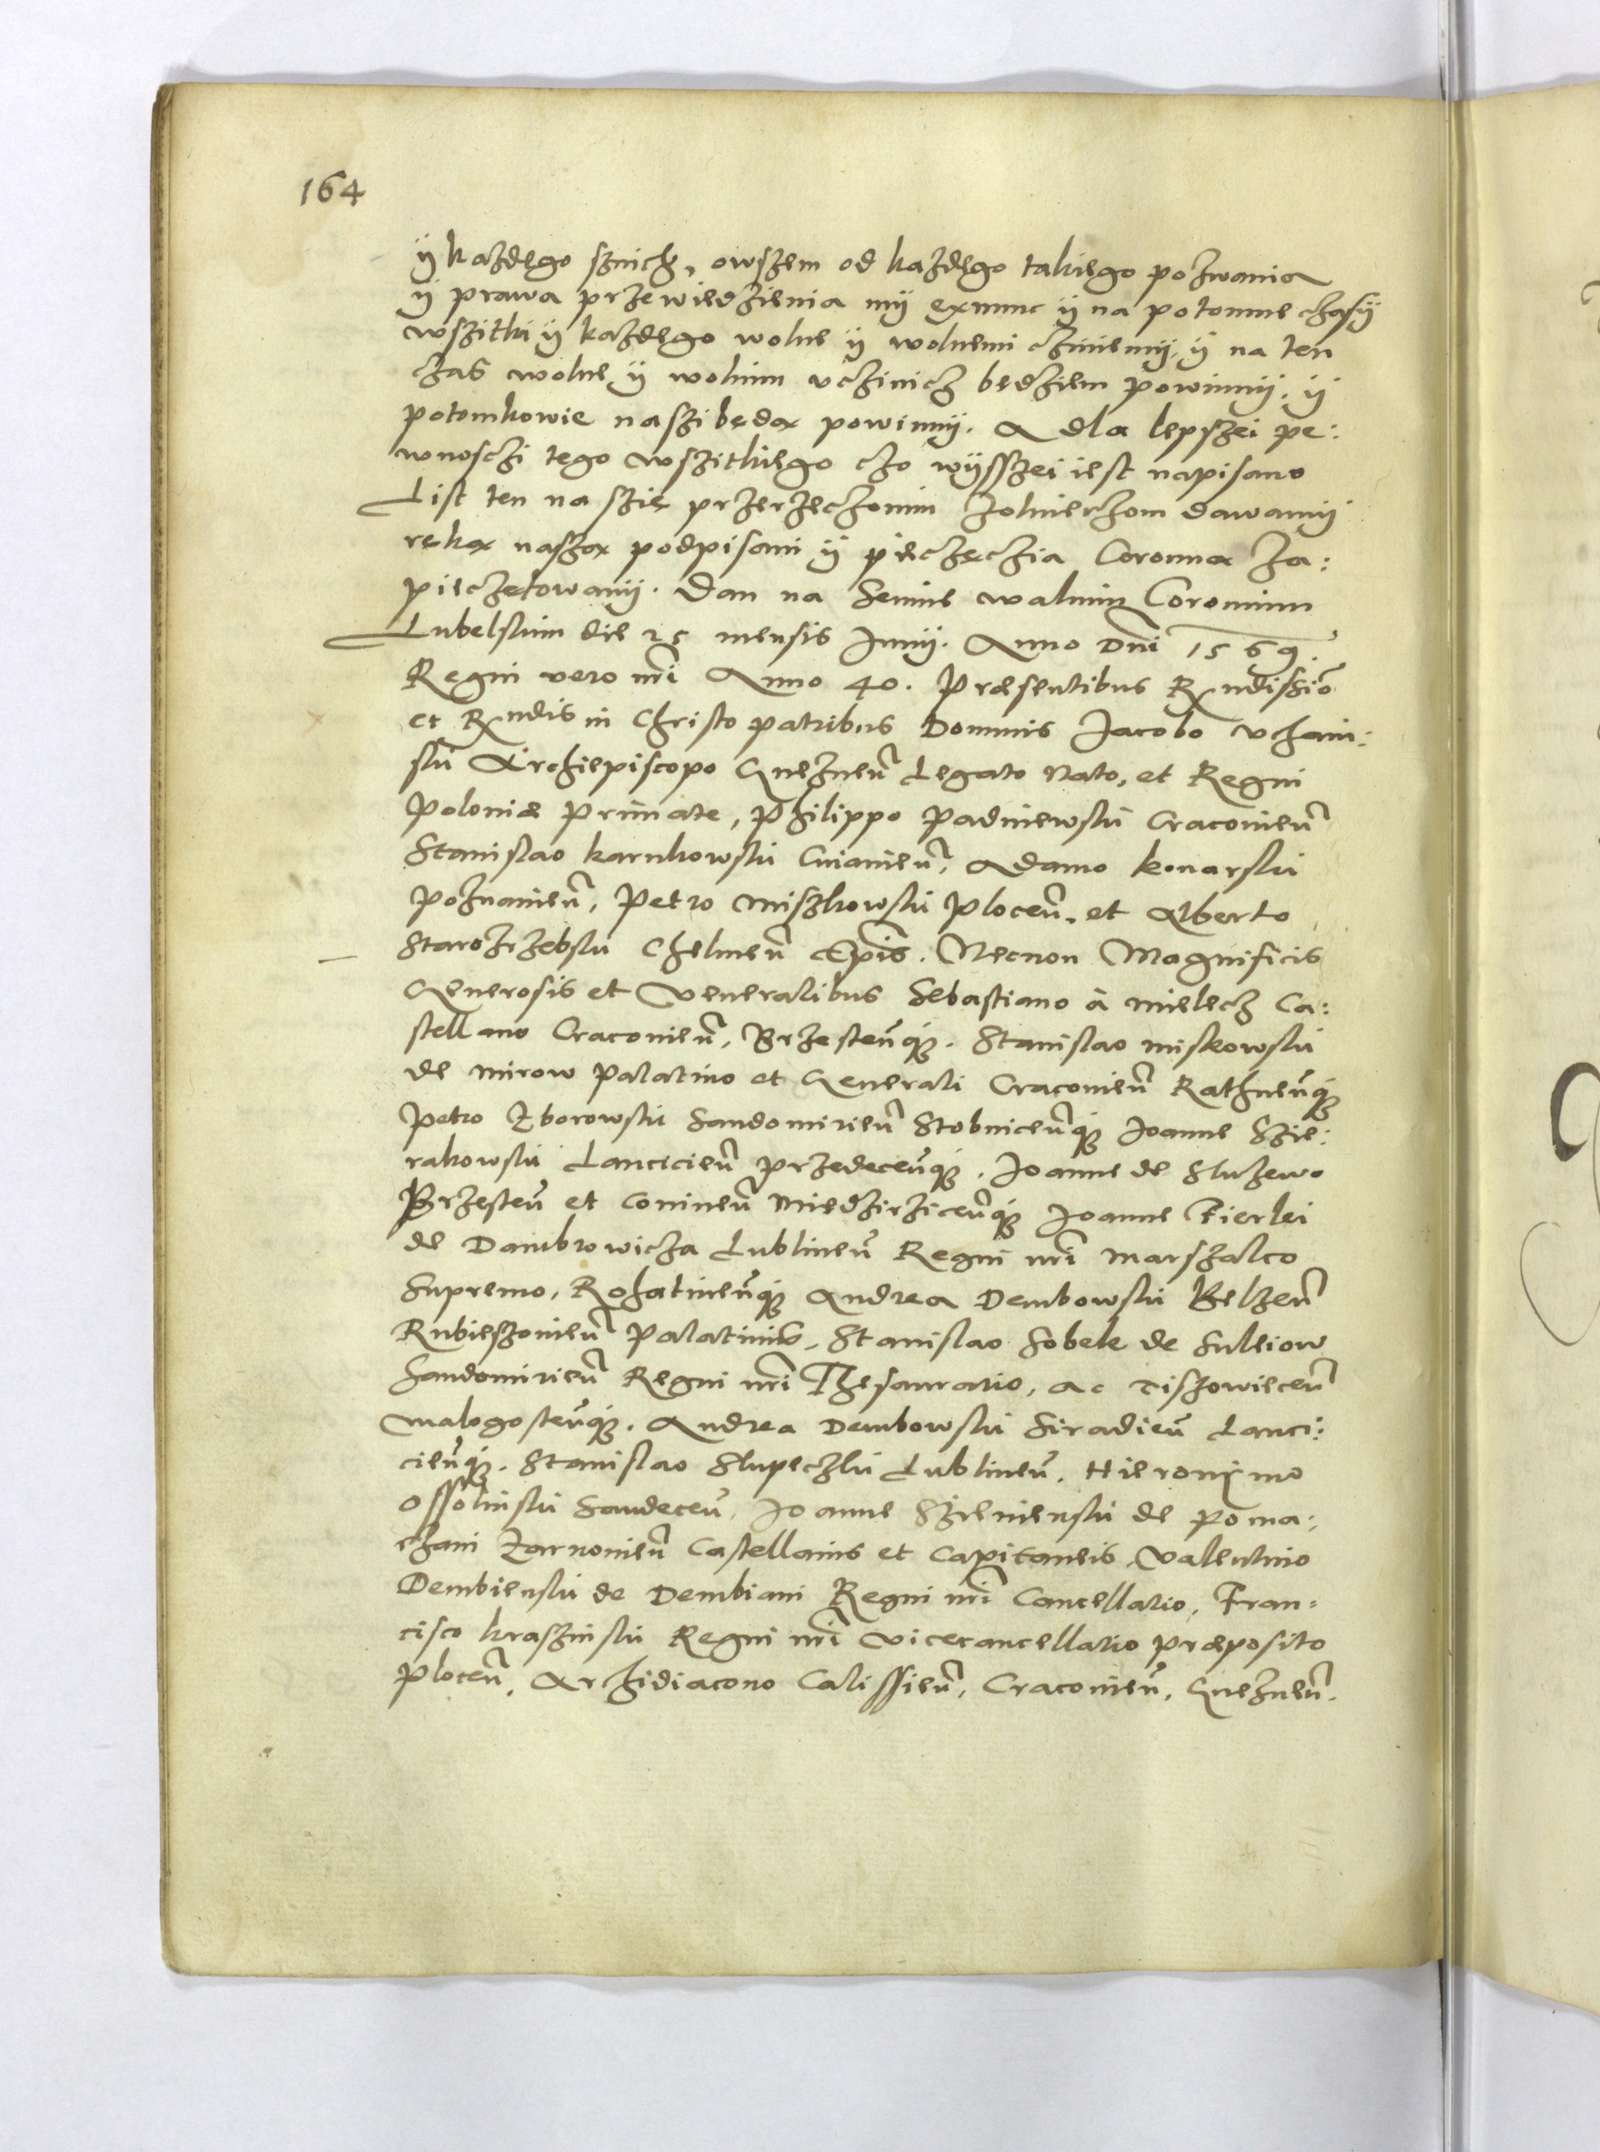 164
ÿ każdęgo sznich, owszem od każdęgo takięgo pozwania
ÿ prawa przewiedzienia mÿ exnunc ÿ na potomne czasÿ
wszitki ÿ każdęgo wolne ÿ wolnemi cziniemÿ, ÿ na ten
czas wolne ÿ wolnim vczinicz będziem powinnÿ, ÿ
potomkowie naszi będą powinnÿ. A dla lepszei pe:
wnosczi tego wszitkięgo czo wÿsszei iest napisano
List ten nasz przerzeczonim Zolnierzom dawamÿ
ręką naszą podpisani ÿ pieczęczią Coronną za:
pieczętowanÿ. Dan na Seimie walnim Coronnim
Lubelskim die 25 mensis Junÿ. Anno Dni 1569.
Regni vero nri Anno 40. Præsentibus Rndissio
et Rndis in Christo patribus Dominis Jacobo Vchain:
ski Archiepiscopo Gneznen Legato Nato, et Regni
Poloniæ Primate, Philippo Padniewski Cracovien
Stanislao Karnkowski Cuiavien, Adamo Konarski
Poznanien, Petro Miszkowski Plocen, et Alberto
Starozrzebski Chelmen Epis. Necnon Magnificis
Generosis et Venerabilibus Sebastiano à Mielecz Ca:
stellano Cracovien, Brzestenq. Stanislao Miskowski
de Mirow Palatino et Generali Cracovien Rathnenq
Petro Zborowski Sandomirien Stobnicenq Joanne Szie:
rakowski Lancicien Przedecenq. Joanne de Sluzewo
Brzesten et Coninen Miedzirzicenq Joanne Fierlei
de Dambrowicza Lublinen Regni nri Marszalco
Supremo, Rohatinenq Andrea Dembowski Belzen
Rubieszovien Palatinis, Stanislao Sobek de Suleiow
Sandomirien Regni nri Thesaurario, ac Tiszowiecen
Malogostenq. Andrea Dembowski Siradien Lanci:
cienq. Stanislao Slupeczki Lublinen, Hieronimo
Ossolinski Sandecen, Joanne Szienienski de Poma:
rzani Zarnovien Castellanis et Capitaneis, Valentino
Dembienski de Dembiani Regni nri Cancellario, Fran:
cisco Krasinski Regni nri Vicecancellario præposito
Plocen, Archidiacono Calissien, Cracovien, Gneznen.